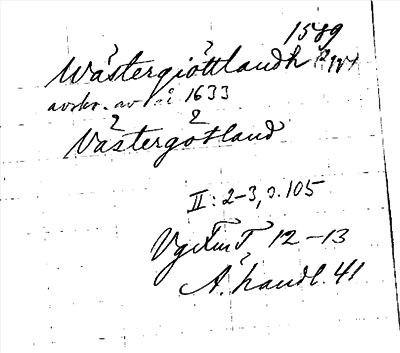 1589
Wästergiöttlandh
avskr. av 1633
2 2
Västergötland
II: 2-3, s. 105
12-13
Ä. handl. 41